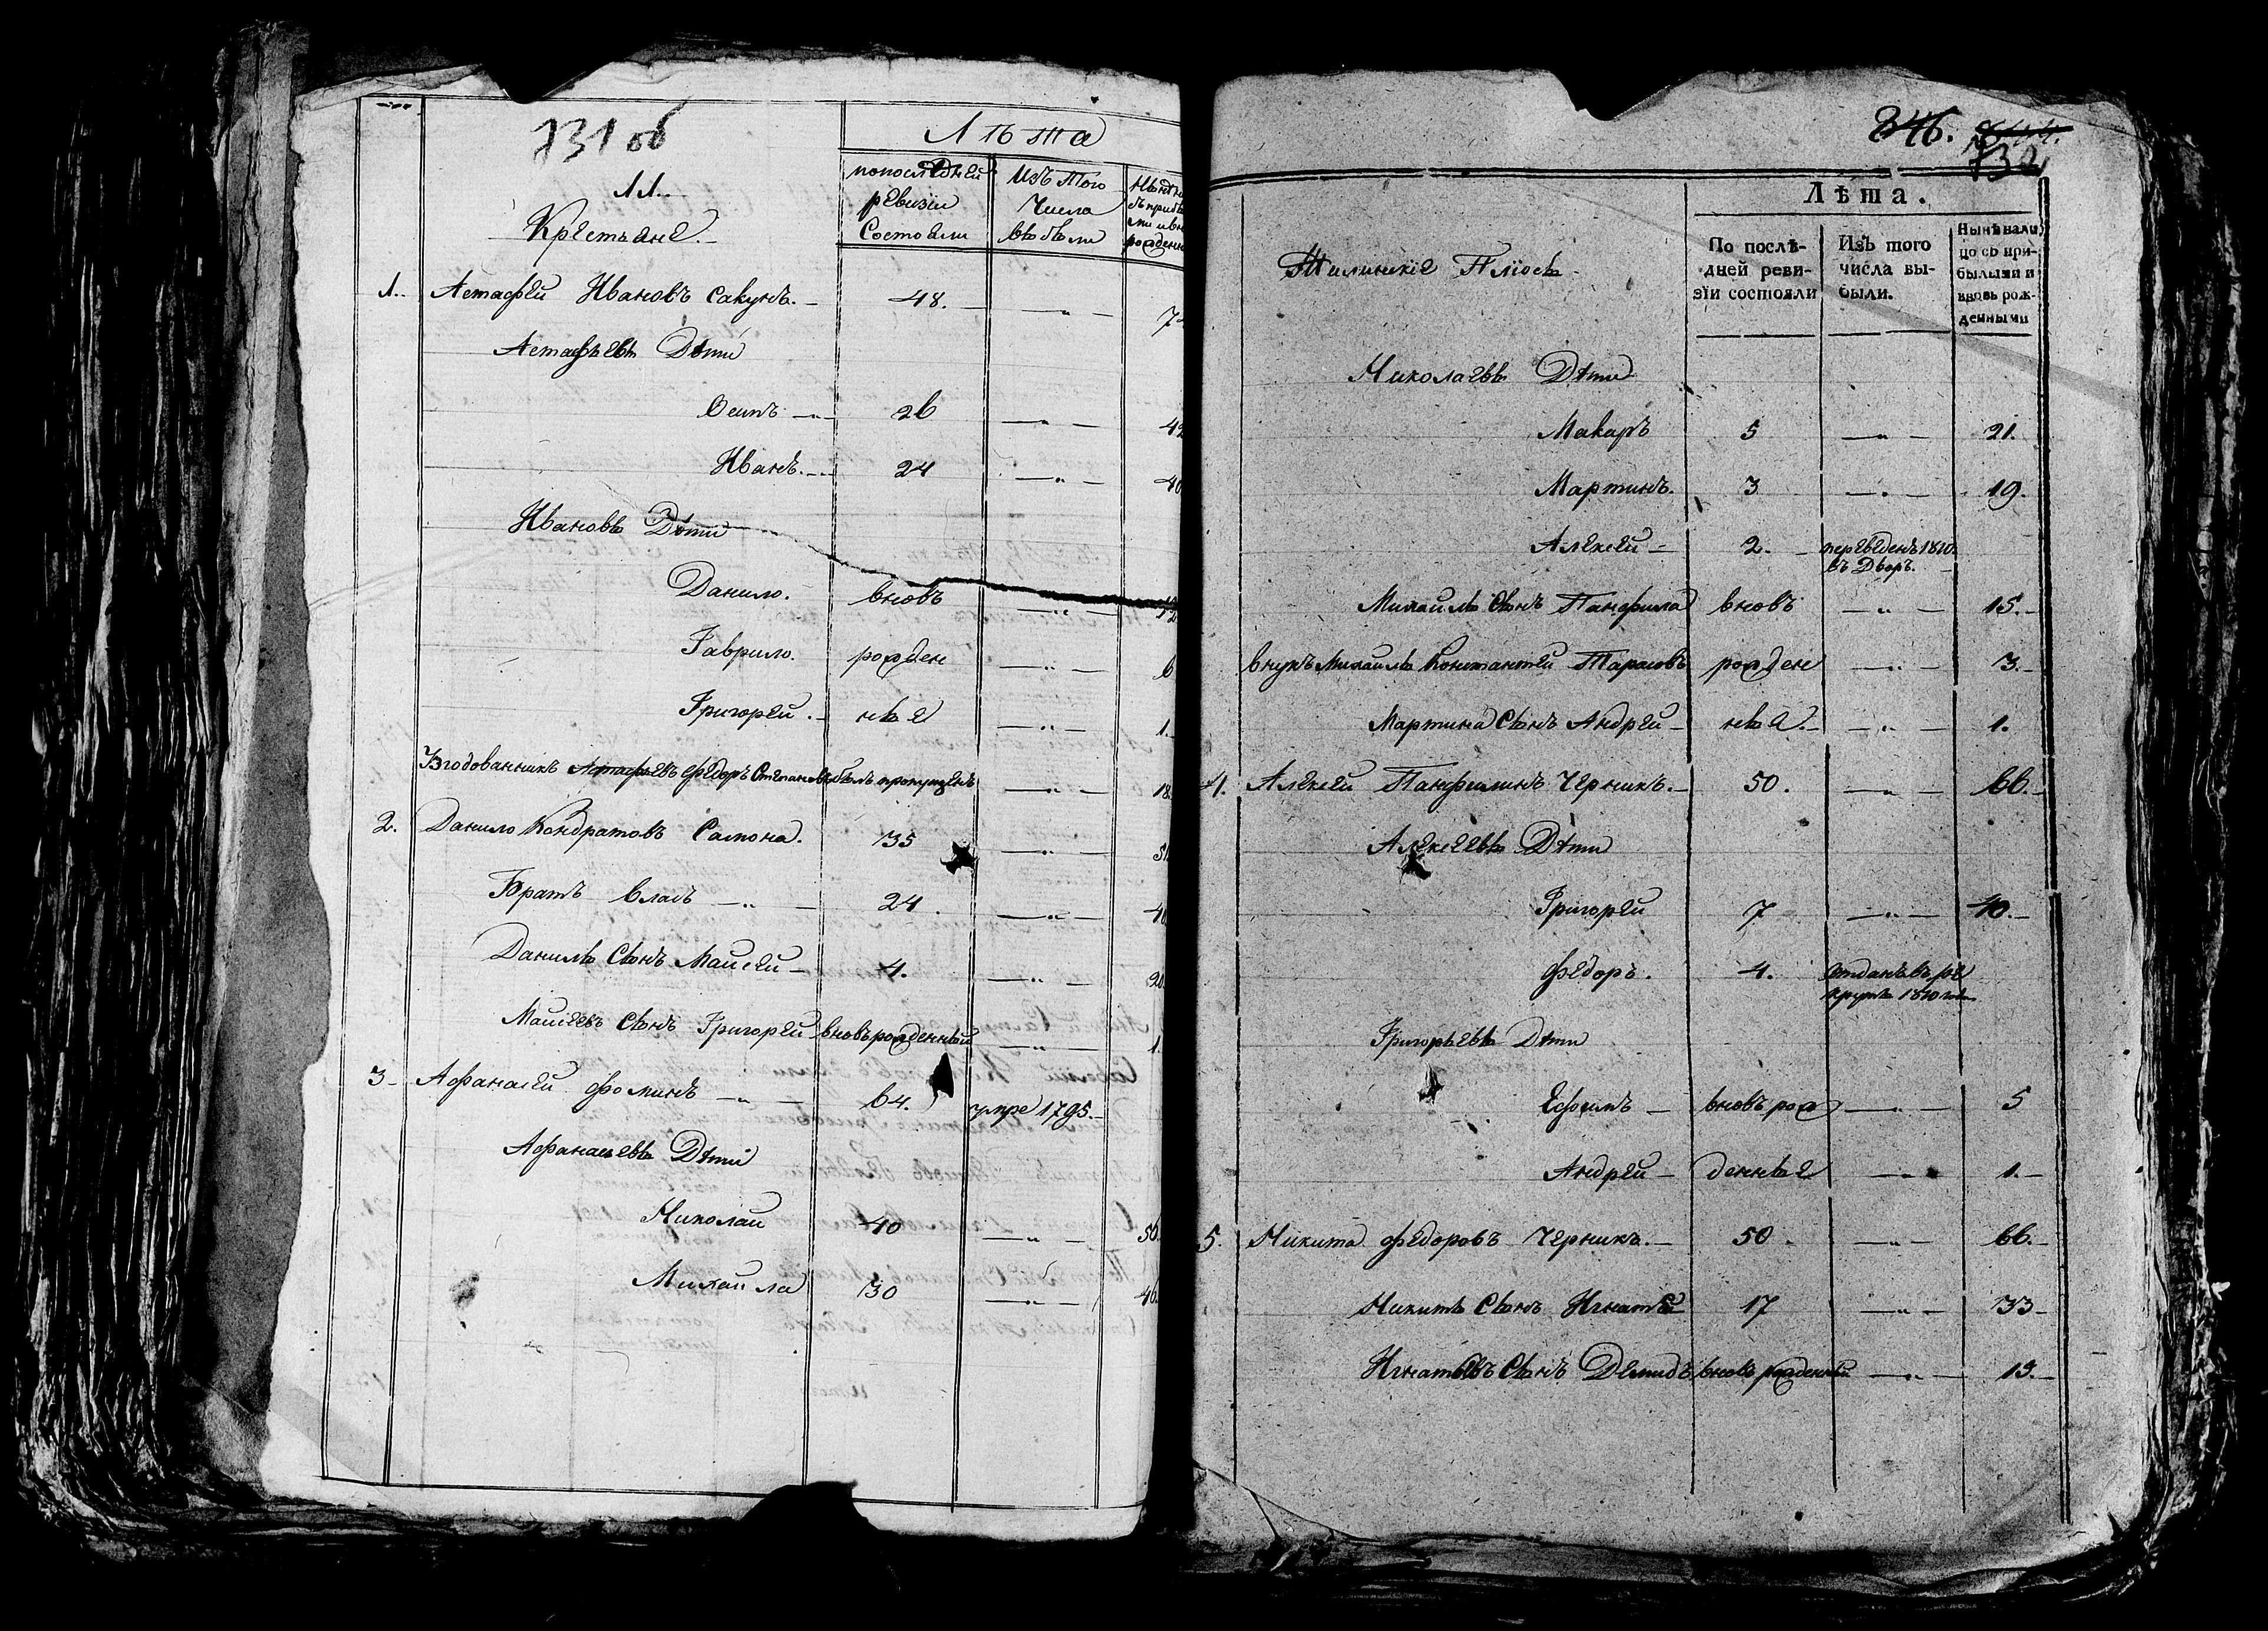 731 об
Лѣта
11.
Крестьяне.
попослѣдней ревизiи Состояли
изъ того Числа выбыли
1. Астафей Ивановъ Сакунъ. 48. — „ —
Астафьевы Дѣти
Осипъ 26 — „ — 42
Иванъ. 24 — „ — 40
Ивановы Дѣти
Данило. вновь — „ — 12
Гаврило. рожден — „ — 6
Григорей. ные — „ — 1.
Згодованникъ Астафьевъ Федоръ Степановъ былъ пропущенъ — „ — 18
2. Данило Кондратовъ 35 — „ — 51
Братъ Власъ — „ — 24 — „ — 40
Данилы Сынъ Маисей 4. — „ — 20
Маисеевъ Сынъ Григорей вновьрожденный — „ — 1.
3 Афанасей Фоминъ — „ — 64. умре 1795.
Афанасьевы Дѣти
Николай 40 — „ — 56
Михайла 30 — „ — 46
846.
732
Лѣта.
По послѣдней ревизiи состояли
Изъ того числа выбыли.
Нынѣ налицо съ прибылыми и вновь рожденными
Николаевы Дѣти
Макаръ 5 — „ — 21.
Мартинъ. 3 — „ — 19.
Алексей 2. переведенъ 1810.
въ Дворъ.
Михайлы Сынъ Панфила вновь — „ — 15.
внукъ Михайлы Константей Тарасовъ рожден — „ — 3.
Мартина Сынъ Андрей ные. — „ — 1.
4. Алексей Панфилинъ Черникъ. 50. — „ — 66.
Алексеевы Дѣти
Григорей 7 — „ — 40.
Федоръ. 4. отданъ въ ре
круты 1810 года
Григорьевы Дѣти
Ефимъ вновь рож — „ — 5
Андрей денные — „ — 1.
5. Никита Федоровъ Черникъ. 50. — „ — 66.
Никиты Сынъ Игнатей 17 — „ — 33
Игнатьевъ Сынъ Демидъ вновь рожденный — „ — 13.